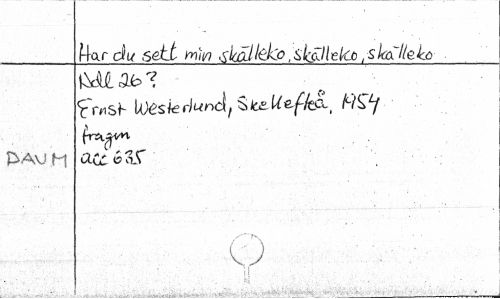 Har du sett min skälleko, skälleko, skälleko
Ndl 26?
Ernst Westerlund, Skellefteå, 1954
fragm
DAUM acc 635